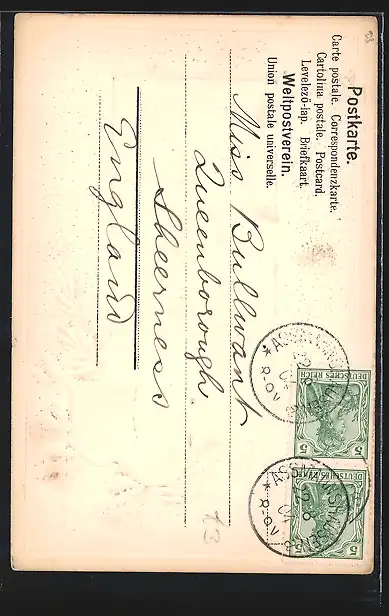 Postkarte.
Carte postale. Correspondenzkarte.
Cartolina postale. Postcard.
Levelező-lap. Briefkaart.
Weltpostverein.
Union postale universelle.
Miss Bullwant
Queenborough
Sheerness
England
DEUTSCHES REICH
5
5
DEUTSCHES REICH
5
5
13